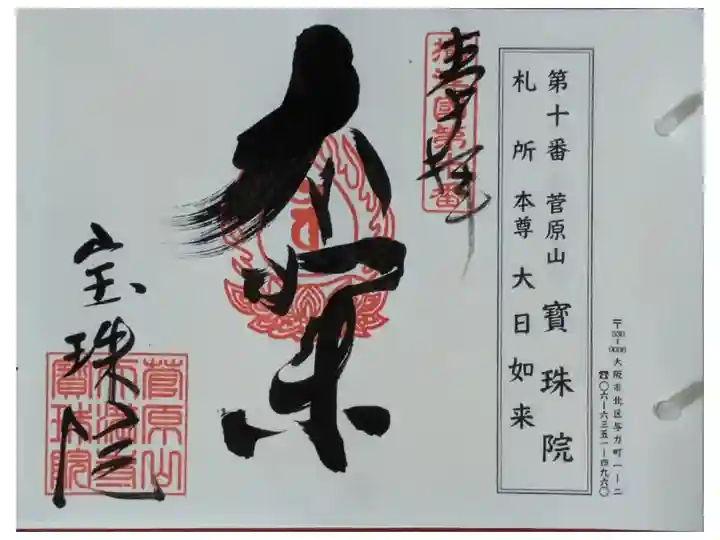 第十番 菅原山 寶珠院
札所 本尊 大日如来
〒530-0036 大阪市北区与力町一ー二
☎〇六ー六三五一ー四九六〇
奉拝
大日如来
宝珠院
菅原山
寶珠院